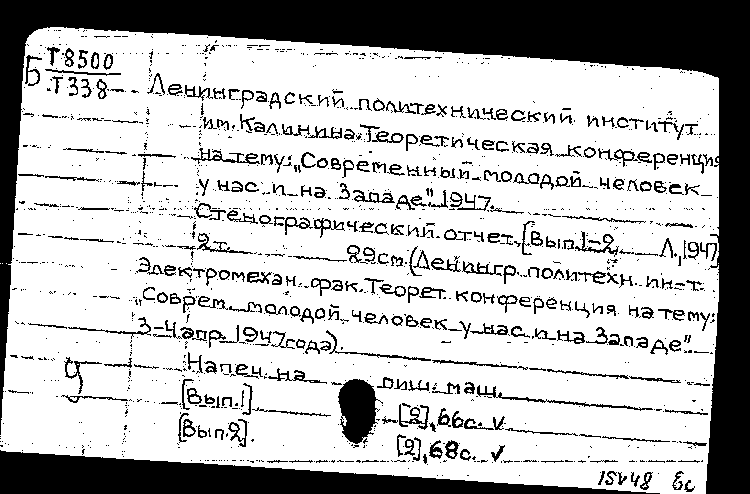 Б Т8500
Т338
Ленинградский политехнический институт
им. Калинина. Теоретическая конференция
на тему: „Современный молодой человек
у нас и на Западе". 1947.
Стенографический отчет. [Вып.1-2. Л., 1947]
2т. 29см. (Ленингр. политехн. ин-т.
Электромехан. фак. Теорет. конференция на тему:
„Соврем. молодой человек у нас и на Западе".
3-4 апр. 1947 года).
Напеч. на пиш. маш.
[Вып.1] [2], 66с. ✓
[Вып.2]. [2], 68с. ✓